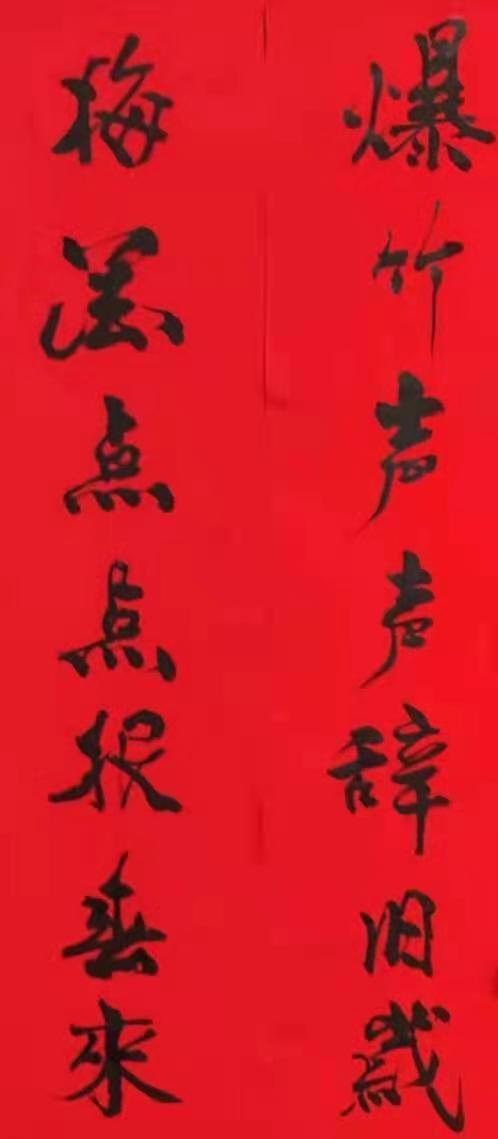 爆竹声声辞旧歲
梅点点报春來